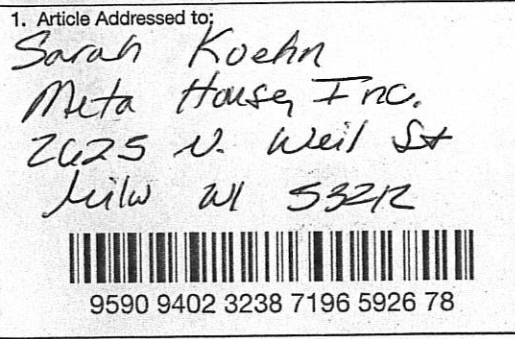 1. Article Addressed to:
Sarah Koehn
Meta House, Inc.
2625 N. Weil St
Milw WI 53212
9590 9402 3238 7196 5926 78